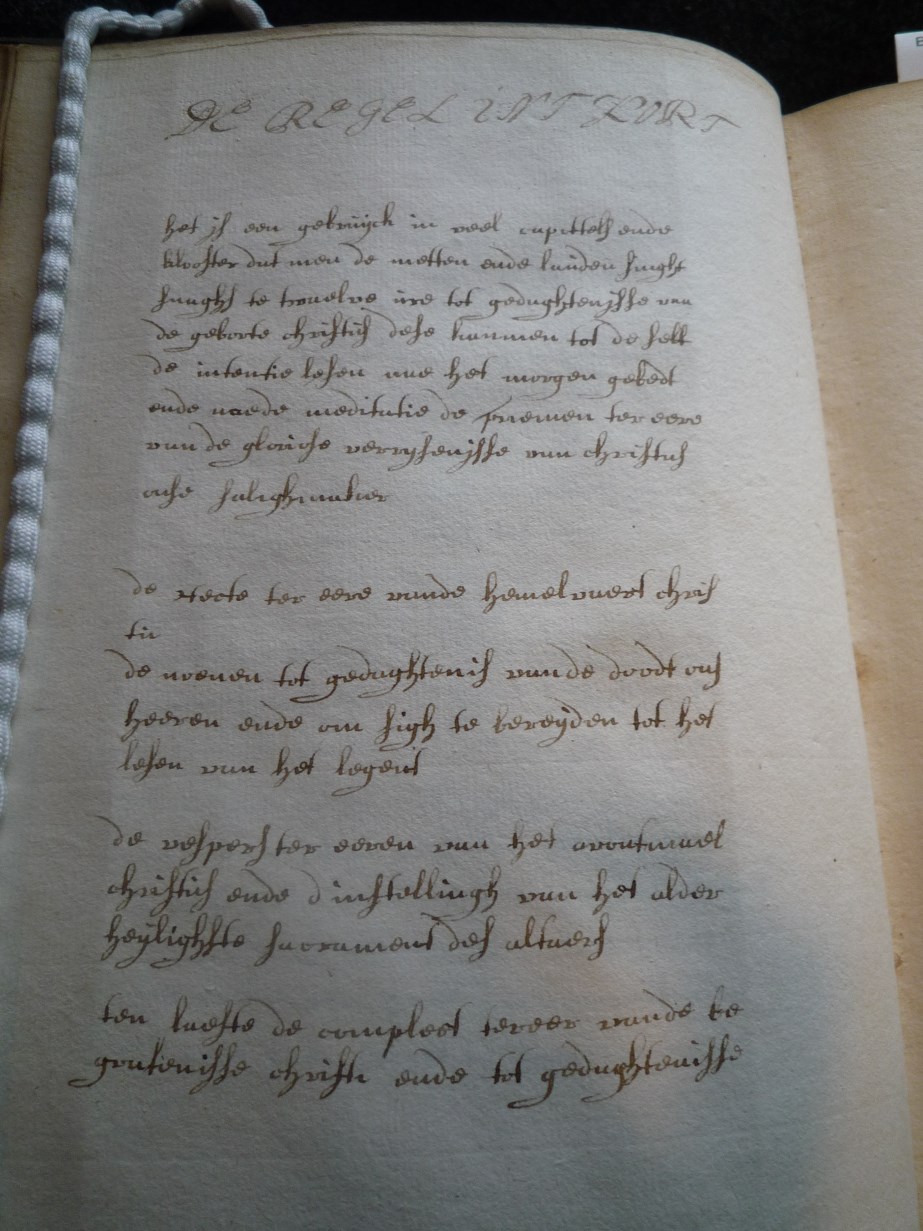 DE REGEL INT KORT
het is een gebruijck in veel capittels ende
klooster dat men de metten ende lauden singht
snaghs te twaelve ure tot gedaghtenisse van
de geborte christis dese kanmen tot de self
de intentie lesen nae het morgen gebedt
ende naede meditatie de priemen ter eere
van de gloriose verrysenisse van christus
onse salighmaker
de tierte ter eere vande hemelvaert chris
tu
de noenen tot gedaghtenis van de doodt ons
heeren ende om sigh te bereyden tot het
lesen van het legent
de vespers ter eeren van het avontmael
christis ende d instellingh van het alder
heylighste sacrament des altaers
ten laeste de compleet ter eer vande be
grafenisse christi ende tot gedaghtenisse